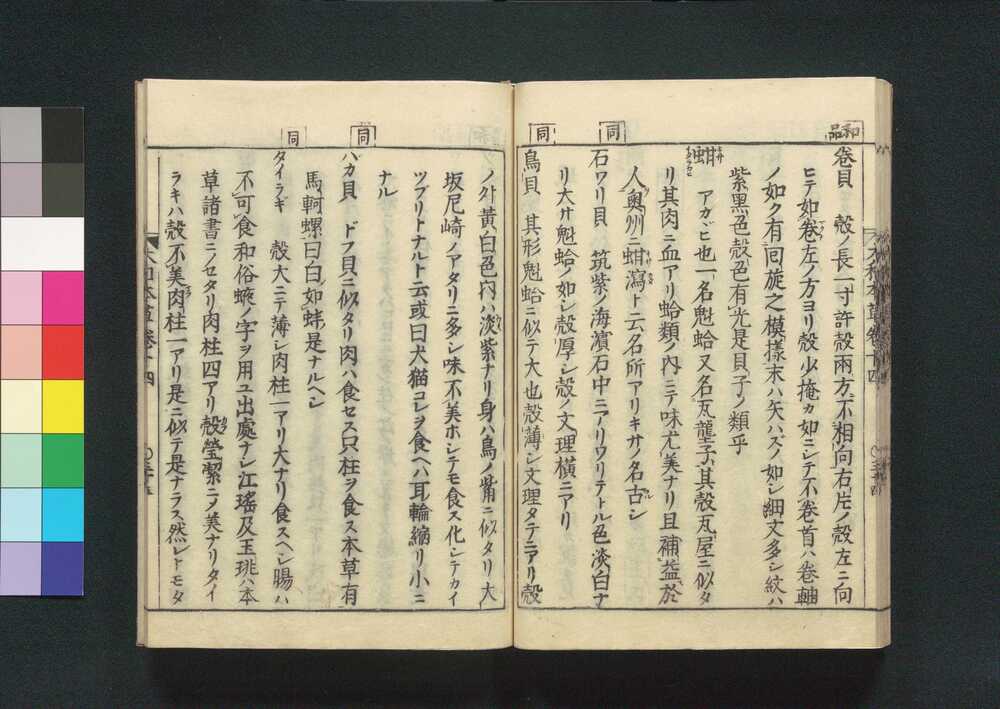 和品
卷貝 殻ノ長一寸許殻兩方不相向右片ノ殻左ニ向
ヒテ如卷左ノ方ヨリ殻少掩カ如ニシテ不卷首ハ卷軸
ノ如ク有囘旋之模樣末ハ矢ハズノ如シ細文多シ紋ハ
紫黑色殻色有光是貝子ノ類乎
蚶 アカヾヒ也一名魁蛤又名瓦壟子其殻瓦屋ニ似タ
リ其肉ニ血アリ蛤類ノ内ニテ味尤美ナリ且補益於
人奥州ニ蚶瀉ト云名所アリキサノ名古シ
同
石ワリ貝 筑紫ノ海濱石中ニアリワリテトル色淡白ナ
リ大サ魁蛤ノ如シ殻厚シ殻ノ文理橫ニアリ
同
鳥貝 其形魁蛤ニ似テ大也殻薄シ文理タテニアリ殻
ノ外黄白色内ハ淡紫ナリ身ハ鳥ノ觜ニ似タリ大
坂尼崎ノアタリニ多シ味不美ホシテモ食ス化シテカイ
ツブリトナルト云或曰犬猫コレヲ食ヘハ耳輪縮リ小ニ
ナル
同
バカ貝 ドフ貝ニ似タリ肉ハ食セス只柱ヲ食ス本草有
馬軻螺曰白如蚌是ナルヘシ
同
タイラギ 殻大ニテ薄シ肉柱一アリ大ナリ食スヘシ腸ハ
不可食和俗蛾ノ字ヲ用ユ出處ナシ江瑤及玉珧ハ本
草諸書ニノセタリ肉柱四アリ殻瑩潔ニメ美ナリタイ
ラキハ殻不美肉柱一アリ是ニ似テ是ナラス然レトモタ
大和本草卷十四